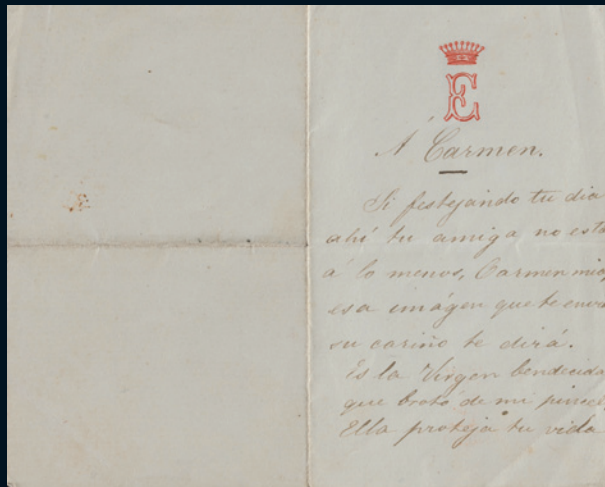 E
Á Carmen.
Si festejando tu dia
ahí tu amiga no está
á lo menos, Carmen mia,
esa imágen que te envia
su cariño te dirá.
Es la Virgen bendecida
que brotó de mi pincel
Ella proteja tu vida